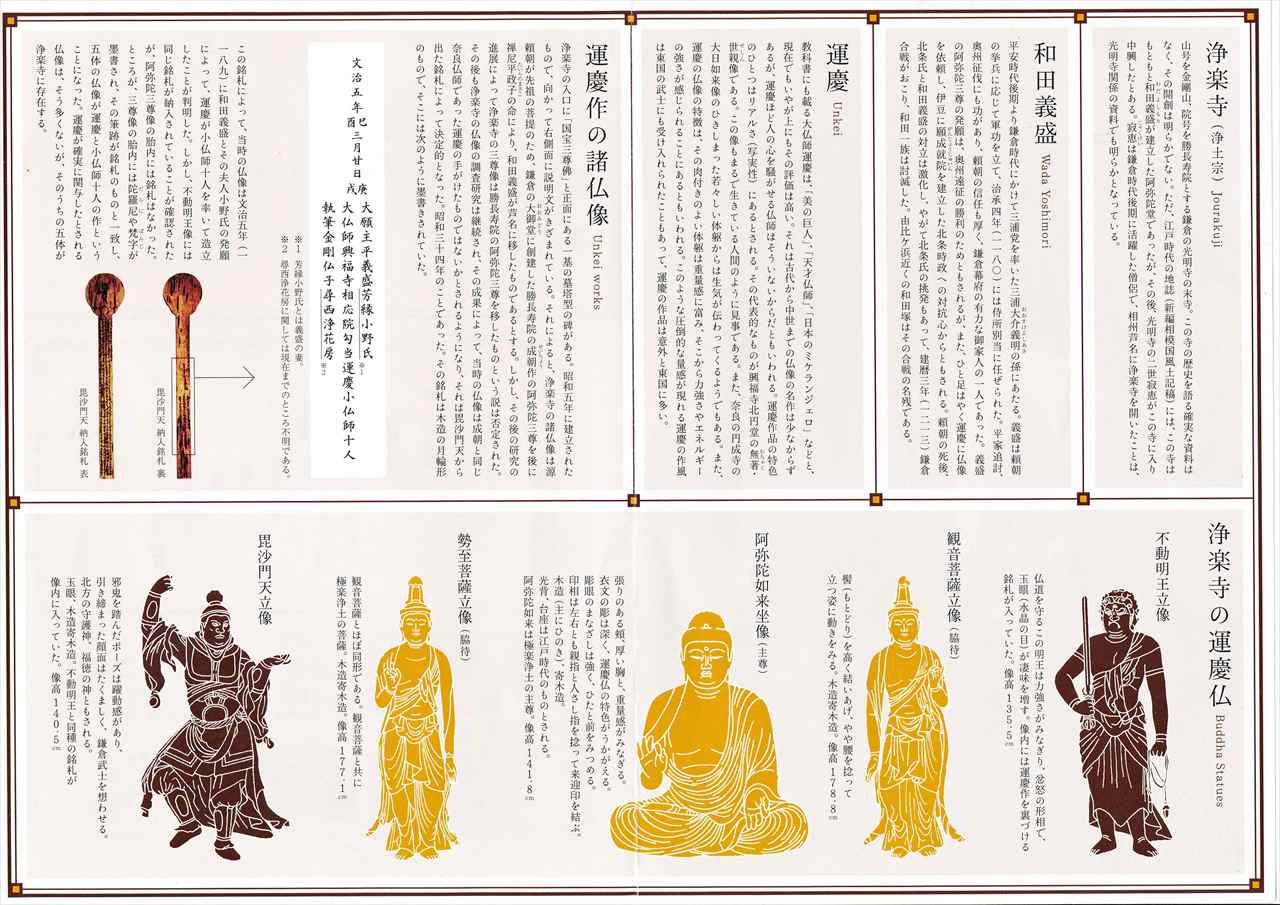 浄楽寺（浄土宗） Jourakuji
山号を金剛山、院号を勝長寿院とする鎌倉の光明寺の末寺。この寺の歴史を語る確実な資料は
なく、その開創は明らかでない。ただ、江戸時代の地誌（新編相模国風土記稿）には、この寺は
もともと和田義盛が建立した阿弥陀堂であったが、その後、光明寺の二世寂恵がこの寺に入り
中興したとある。寂恵は鎌倉時代後期に活躍した僧侶で、相州芦名に浄楽寺を開いたことは、
光明寺関係の資料でも明らかとなっている。
和田義盛 Wada Yoshimori
平安時代後期より鎌倉時代にかけて三浦党を率いた三浦大介義明の孫にあたる。義盛は頼朝
の挙兵に応じて軍功を立て、治承四年（一一八〇）には侍所別当に任ぜられた。平家追討、
奥州征伐にも功があり、頼朝の信任も厚く、鎌倉幕府の有力な御家人の一人であった。義盛
の阿弥陀三尊の発願は、奥州遠征の勝利のためともされるが、また、ひと足はやく運慶に仏像
を依頼し、伊豆に願成就院を建立した北条時政への対抗心からともされる。頼朝の死後、
北条氏と和田義盛の対立は激化し、やがて北条氏の挑発もあって、建暦三年（一二一三）鎌倉
合戦がおこり、和田一族は討滅した。由比ケ浜近くの和田塚はその合戦の名残である。
運慶 Unkei
教科書にも載る大仏師運慶は、「美の巨人」、「天才仏師」、「日本のミケランジェロ」などと、
現在でもいやが上にもその評価は高い。それは古代から中世までの仏像の名作は少なからず
あるが、運慶ほど人の心を騒がせる仏師はそういないからだともいわれる。運慶作品の特色
のひとつはリアルさ（写実性）にあるとされる。その代表的なものが興福寺北円堂の無著・
世親像である。この像もまるで生きている人間のように見事である。また、奈良の円成寺の
大日如来像のひきしまった若々しい体躯からは生気が伝わってくるようでもある。また、
運慶の仏像の特徴は、その肉付きのよい体躯は重量感に富み、そこから力強さやエネルギー
の強さが感じられることにあるともいわれる。このような圧倒的な量感が現れる運慶の作風
は東国の武士にも受け入れられたこともあって、運慶の作品は意外と東国に多い。
運慶作の諸仏像 Unkei works
浄楽寺の入口に「国宝三尊佛」と正面にある一基の墓塔型の碑がある。昭和五年に建立された
もので、向かって右側面に説明文がきざまれている。それによると、浄楽寺の諸仏像は源
頼朝が先祖の菩提のため、鎌倉の大御堂に創建した勝長寿院の成朝作の阿弥陀三尊を後に
禅尼平政子の命により、和田義盛が芦名に移したものであるとする。しかし、その後の研究の
進展によって浄楽寺の三尊は勝長寿院の阿弥陀三尊を移したものという説は否定された。
その後も浄楽寺の仏像の調査研究は継続され、その成果によって、当時の仏像は成朝と同じ
奈良仏師であった運慶の手がけたものではないかとされるようになり、それは毘沙門天から
出た銘札によって決定的となった。昭和三十四年のことであった。その銘札は木造の月輪形
のもので、そこには次のように墨書きされていた。
文治五年巳酉三月廿日庚戌
大願主平義盛芳縁小野氏 ※1
大仏師興福寺相応院勾当運慶小仏師十人
執筆金剛仏子尋西浄花房 ※2
※1 芳縁小野氏とは義盛の妻。
※2 尋西浄花房に関しては現在までのところ不明である。
この銘札によって、当時の仏像は文治五年（一
一八九）に和田義盛とその夫人小野氏の発願
によって、運慶が小仏師十人を率いて造立
したことが判明した。しかし、不動明王像には
同じ銘札が納入されていることが確認された
が、阿弥陀三尊像の胎内には銘札はなかった。
ところが、三尊像の胎内には陀羅尼や梵字が
墨書され、その筆跡が銘札のものと一致し、
五体の仏像が運慶と小仏師十人の作という
ことになった。運慶が確実に関与したとされる
仏像は、そう多くないが、そのうちの五体が
浄楽寺に存在する。
毘沙門天 納入銘札 裏
毘沙門天 納入銘札 表
浄楽寺の運慶仏 Buddha Statues
不動明王立像
仏道を守るこの明王は力強さがみなぎり、忿怒の形相で、
玉眼（水晶の目）が凄味を増す。像内には運慶作を裏づける
銘札が入っていた。像高 135.5㎝
観音菩薩立像（脇待）
髻（もとどり）を高く結いあげ、やや腰を捻って
立つ姿に動きをみる。木造寄木造。像高 178.8㎝
阿弥陀如来坐像（主尊）
張りのある頬、厚い胸と、重量感がみなぎる。
衣文の彫は深く、運慶仏の特色がうかがえる。
彫眼のまなざしは強く、ひたと前をみつめる。
印相は左右とも親指と人さし指を捻って来迎印を結ぶ。
木造（主にひのき）、寄木造。
光背、台座は江戸時代のものとされる。
阿弥陀如来は極楽浄土の主尊。像高 141.8㎝
勢至菩薩立像（脇待）
観音菩薩とほぼ同形である。観音菩薩と共に
極楽浄土の菩薩。木造寄木造。像高 177.1㎝
毘沙門天立像
邪鬼を踏んだポーズは躍動感があり、
引き締まった顔面はたくましく、鎌倉武士を想わせる。
北方の守護神、福徳の神ともされる。
玉眼、木造寄木造。不動明王と同種の銘札が
像内に入っていた。像高 140.5㎝